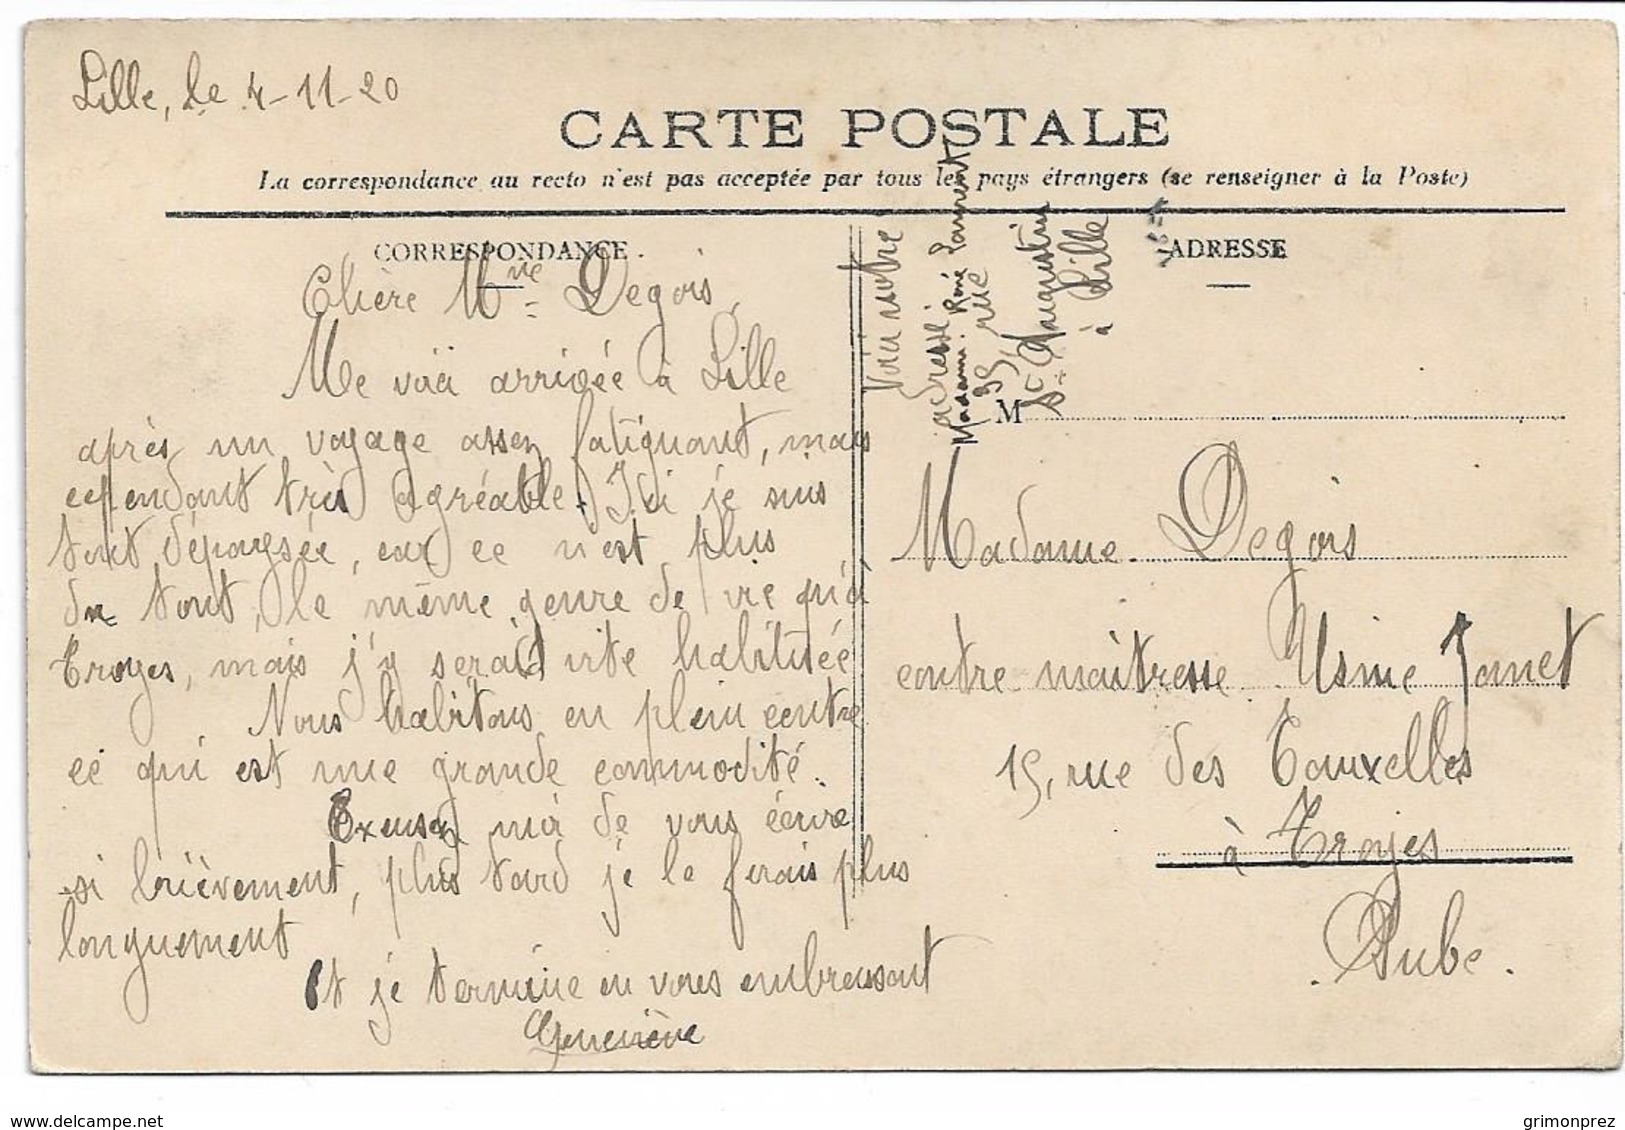 Lille, le 4-11-20
CARTE POSTALE
La correspondance au recto n'est pas acceptée par tous les pays étrangers (se renseigner à la Poste)
CORRESPONDANCE
Chère Mme Degois,
Me voici arrivée à Lille
après un voyage assez fatiguant, mais
cependant très agréable. Ici je suis
tout dépaysée, car ce n'est plus
du tout, le même genre de vie qu'à
Troyes, mais j'y serai vite habituée
Nous habitons en plein centre
ce qui est une grande commodité.
Excusez moi de vous écrire
si brièvement, plus tard je le ferais plus
longuement
Et je termine en vous embrassant
Geneviève
Voici notre
adresse:
Madame René Laurent
35, rue
St Augustin
à Lille
ADRESSE
M
Madame Degois
contre-maîtresse Usine Jomet
15, rue des Tauxelles
à Troyes
Aube.
www.delcampe.net
grimonprez